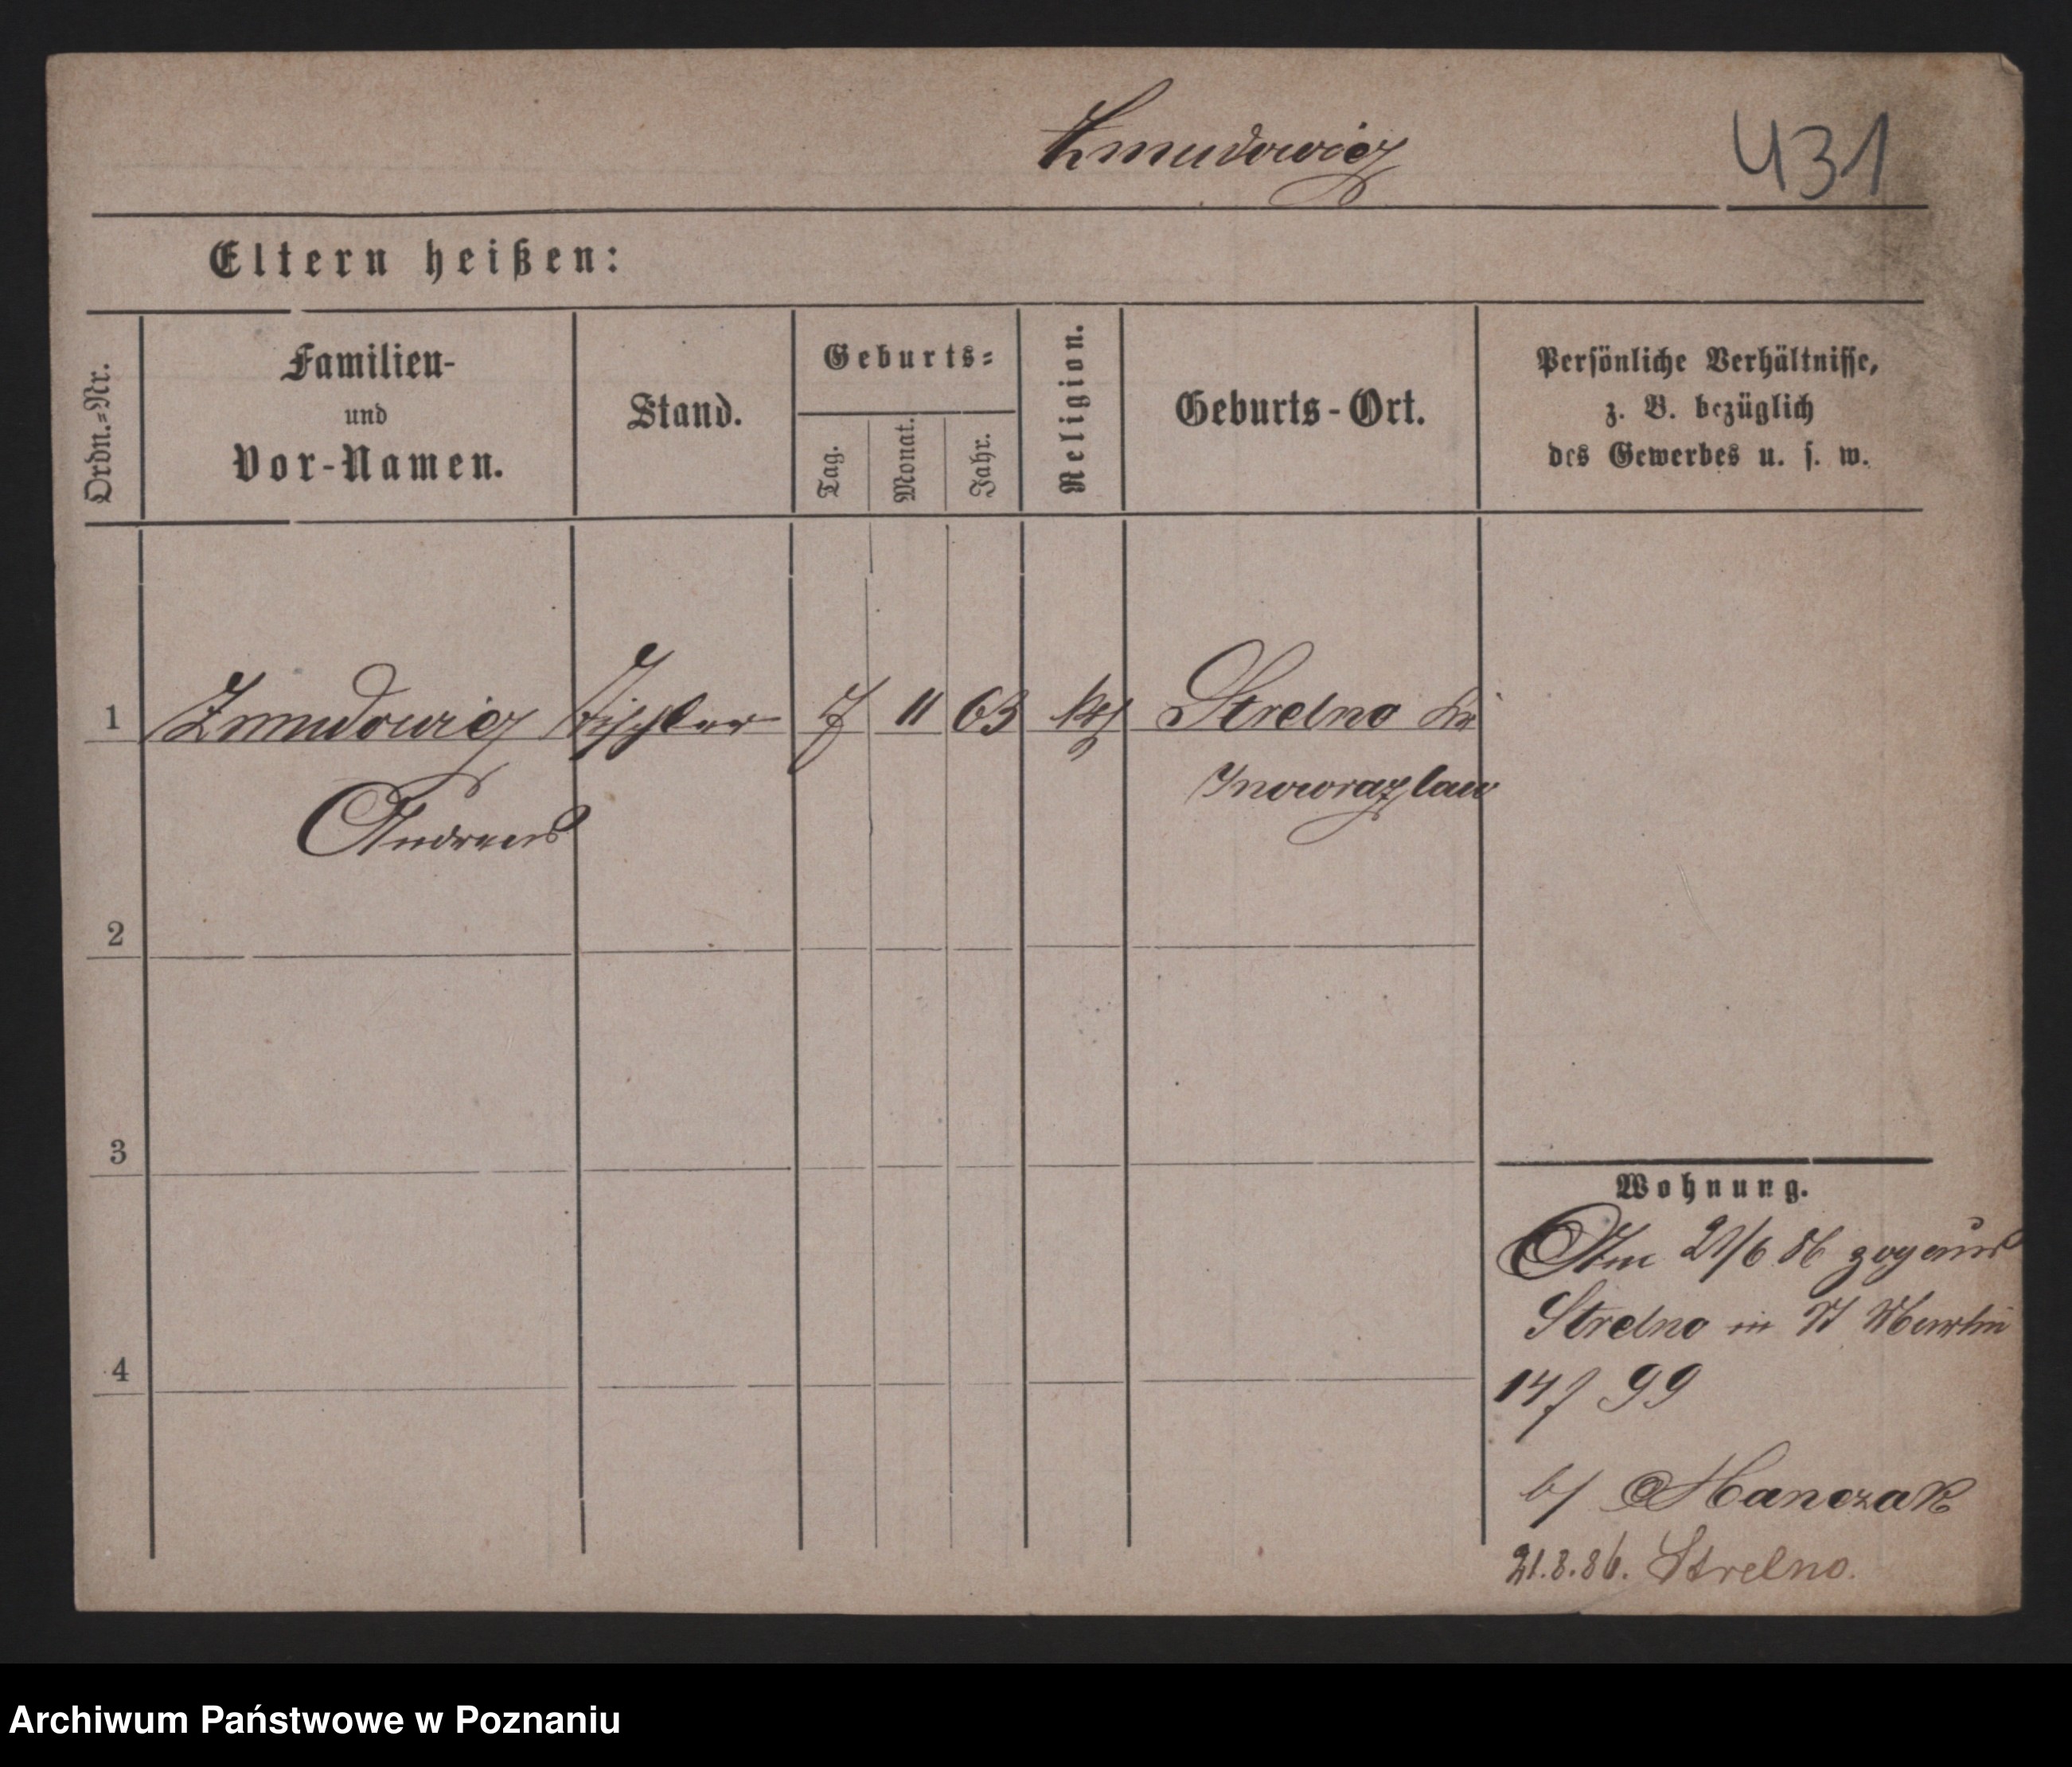 Zmudowicz
431
Eltern heißen:
Ordn.=Nr.
Familien-
und
Vor-Namen.
Stand.
Geburts=
Tag.
Monat.
Jahr.
Religion.
Geburts-Ort.
Persönliche Verhältnisse,
z. B. bezüglich
des Gewerbes u. s. w.
1 Zmudowicz Tischler 7 11 63 kth Strelno Kr
Inowrazlaw
Andreas
2
3
4
Wohnung.
Am 21/6 86 zog aus
Strelno in St Martin
14 / 99
b/ Hanczak
21.8.86. Strelno.
Archiwum Państwowe w Poznaniu